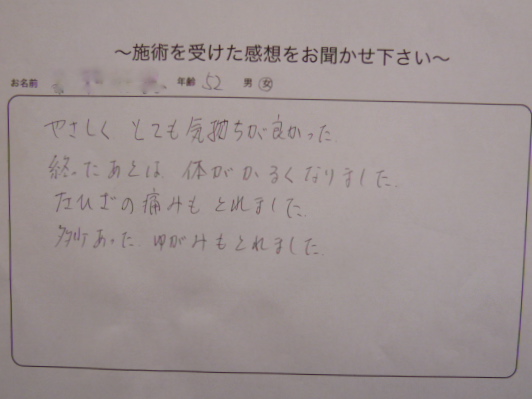 ～施術を受けた感想をお聞かせ下さい～
お名前 年齢 52 男 女
やさしく とても気持ちが良かった.
終ったあとは、体がかるくなりました.
左ひざの痛みも とれました.
多少あった ゆがみもとれました.